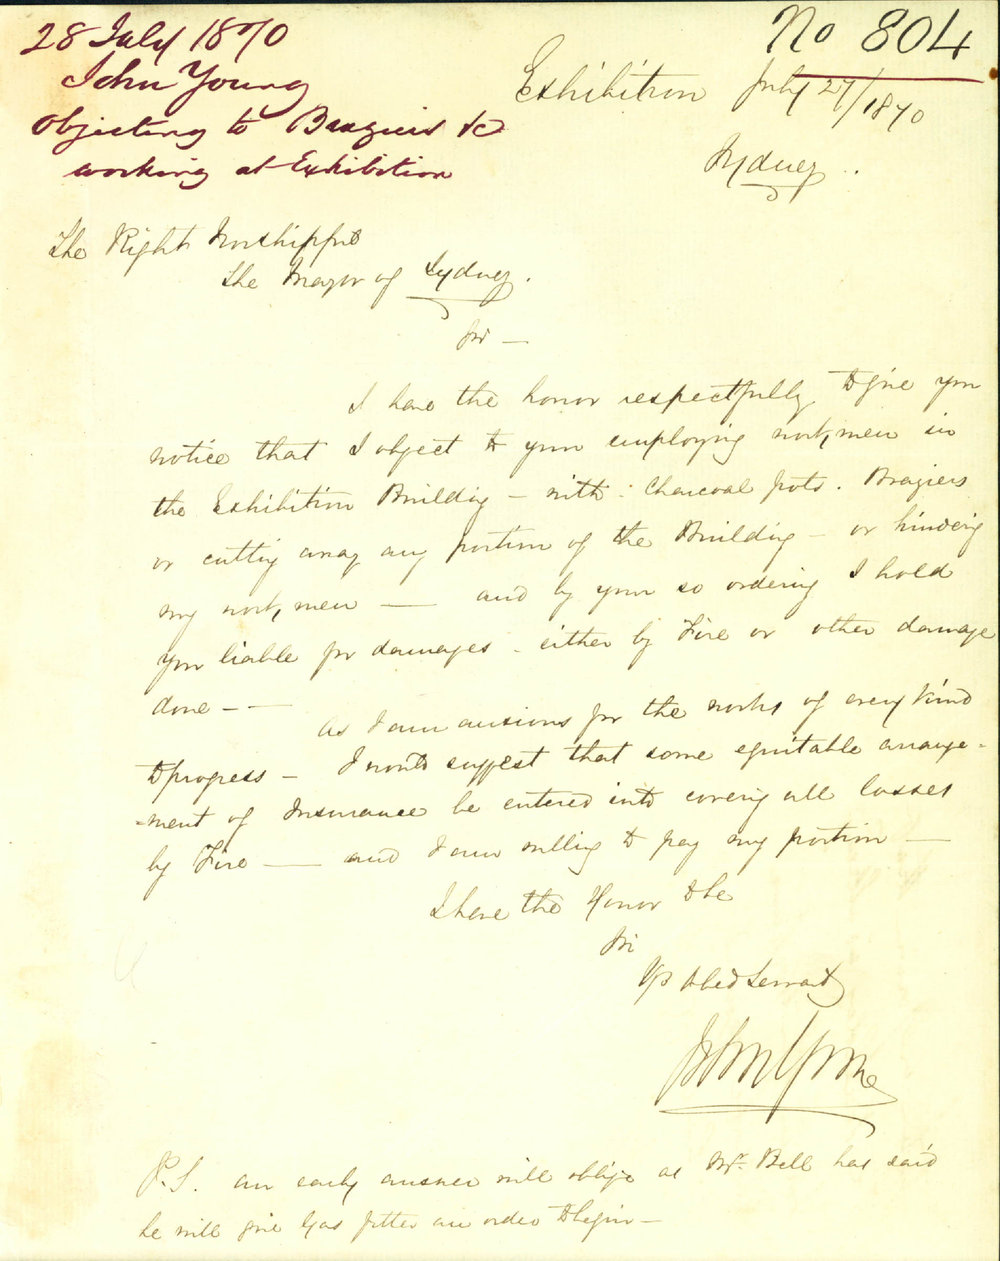 28 July 1870
John Young
Objecting to Braziers &c
working at Exhibition
No 804
Exhibition July 27/1870
Sydney
The Right Worshipful
The Mayor of Sydney.
Sir —
I have the honor respectfully to give you
notice that I object to your employing workmen in
the Exhibition Building — with: Charcoal pots. Braziers
or cutting away any portion of the Building — or hindering
my workmen — and by your so ordering I hold
you liable for damages - either by Fire or other damage
done — —
As I am anxious for the works of every kind
to progress — I would suggest that some equitable arrange-
-ment of Insurance be entered into covering all losses
by Fire — and I am willing to pay my portion —
I have the Honor to be
Sir
Yr Obed Servant
John Young
P.S. an early answer will oblige as Mr. Bell has said
he will give Gas fitter an order to begin —